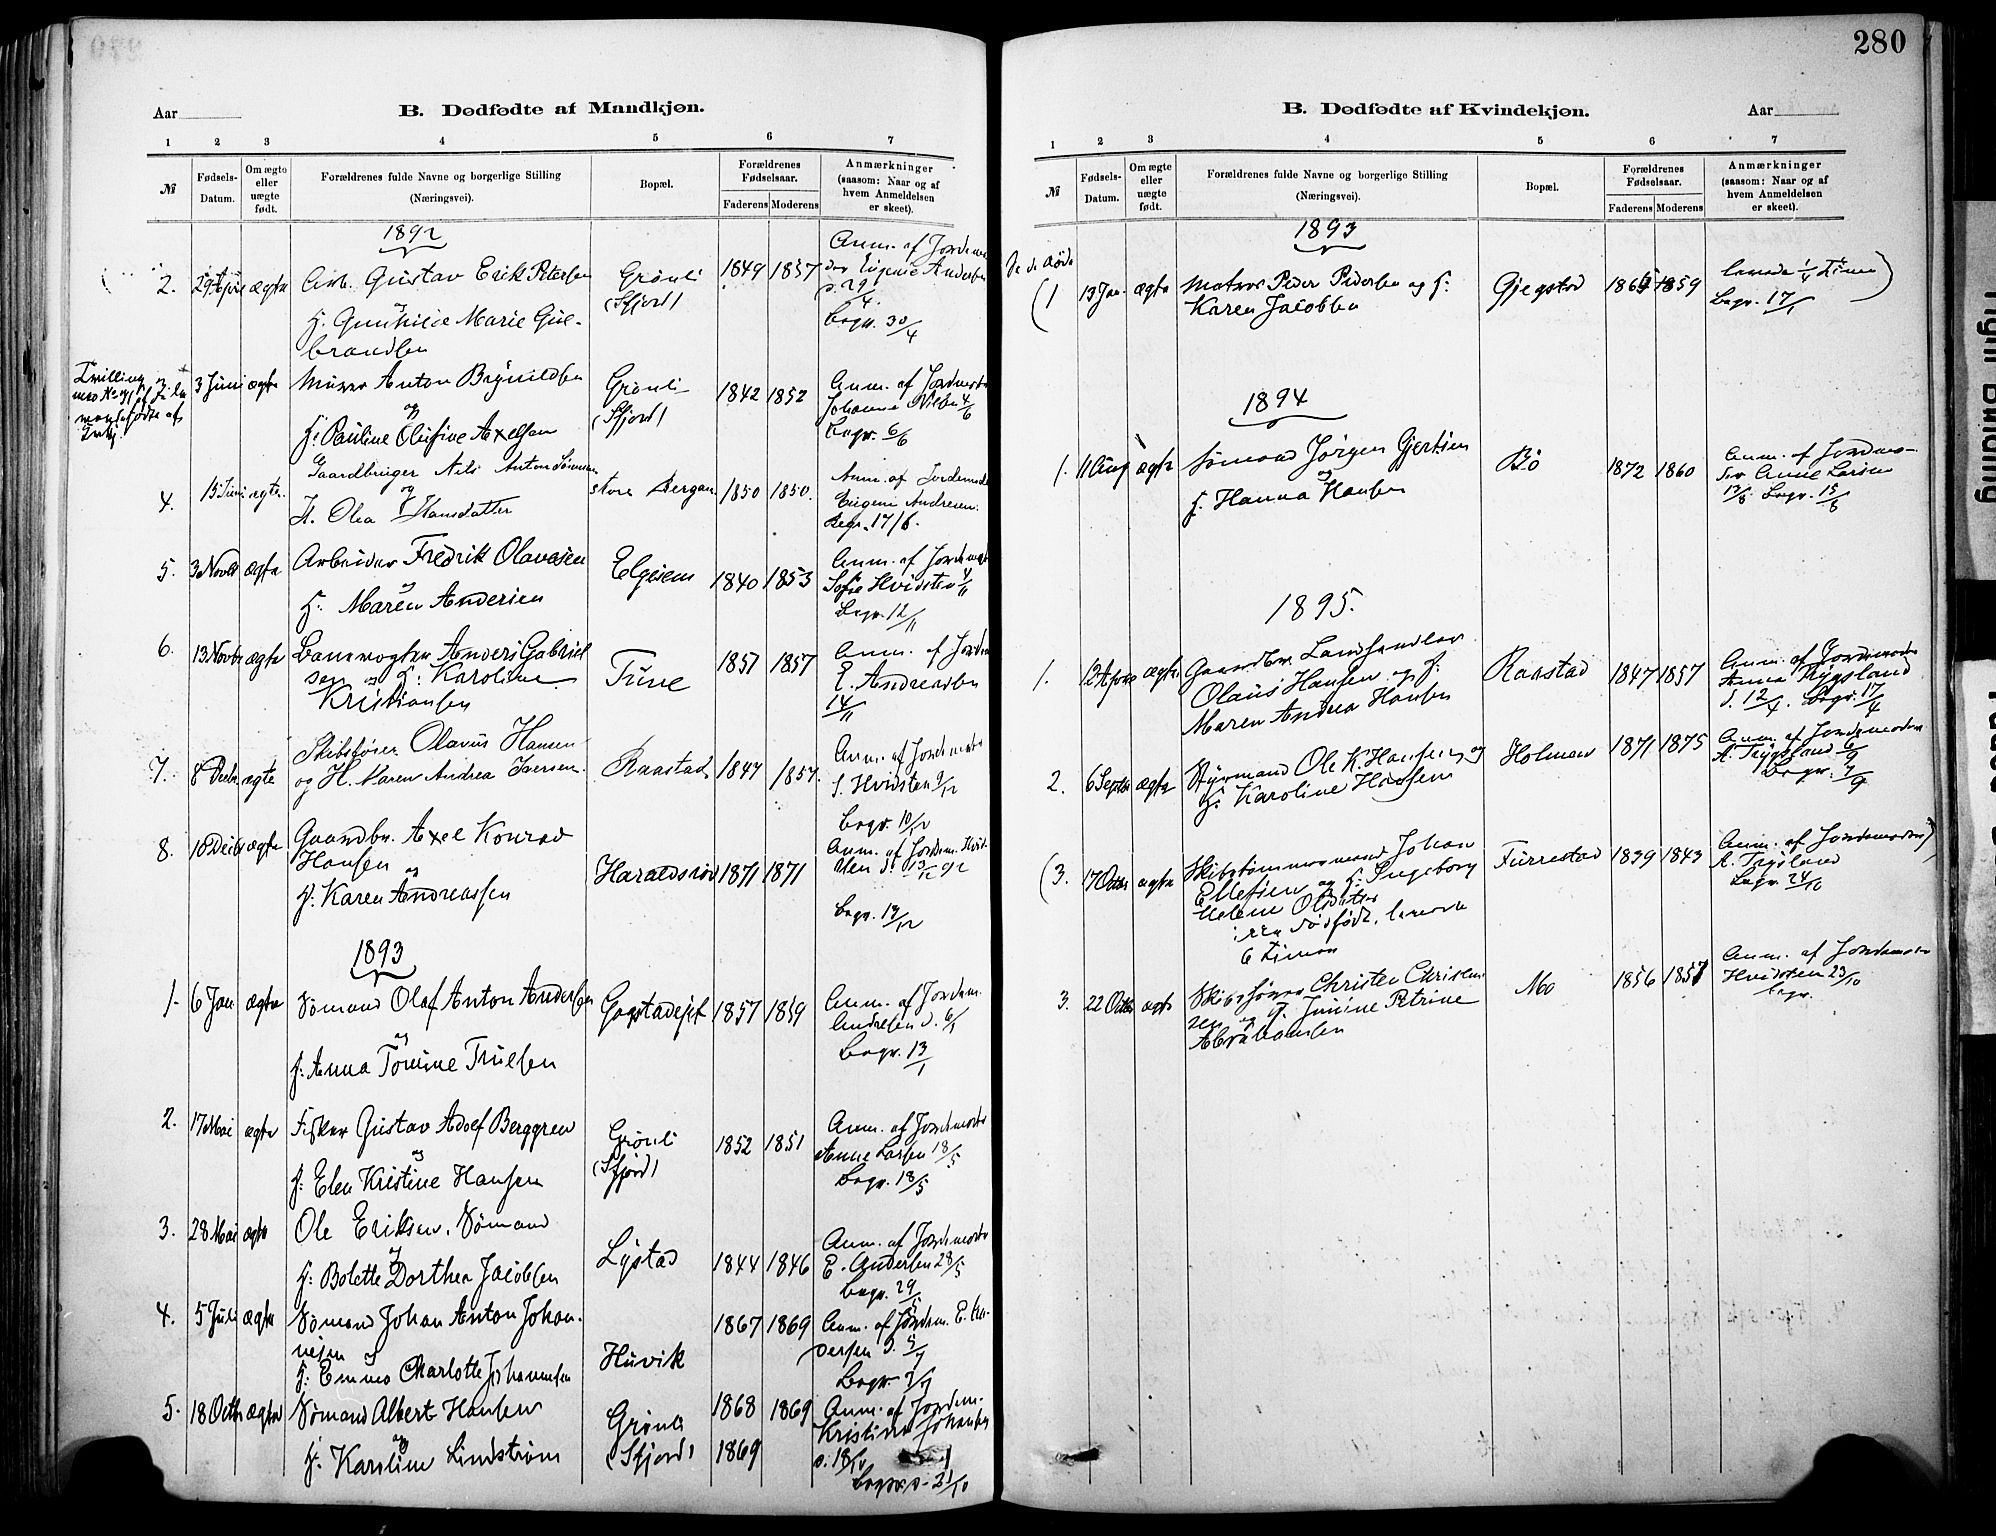 280
B. Dødfødte af Mandkjøn.
Aar
1 2 3 4 5 6 7
№
Fødsels-
Datum.
Om ægte
eller
uægte
født.
Forældrenes fulde Navne og borgerlige Stilling
(Næringsvei).
Bopæl.
Forældrenes
Fødselsaar.
Faderens Moderens
Anmærkninger
(saasom: Naar og af
hvem Anmeldelsen
er skeet).
1892
2. 29 April ægte Arb. Gustav Erik Petersen Grønli 1849 1857 Anm. af
og (Sfjord)
Begr. 30/4
3 Juni ægte Murer Anton Brynildsen Grønli 1842 1852 Anm. af Jordmoder
og (Sfjord) Johanne Nilsen 4/6
H: Pauline Olufine Axelsen Begr. 6/6
4. 15 Juni ægte. Gaardbruger Nils Anton Sørensen store Bergan 1850 1850. Anm. af Jordemoder
og Eugenie Andresen
H. Olea Hansdatter Begr. 17/6.
5. 3 Novbr ægte Arbeider Fredrik Olavesen Elgesem 1840 1853 Anm. af Jordemoder
og Sofie Hvidsten 4/11
H: Maren Andersen Begr. 12/11
6. 13 Novbr ægte Banevogter Anders Gabriel Tune 1857 1857 Anm. af
sen og H: Karoline E. Andreassen
Kristiansen 14/11
7. 8 Decbr ægte Skibsfører Olavus Hansen Raastad 1847 1857. Anm. af Jordemoder
og H. Maren Andrea Iversen. S. Hvidsten 9/12
Begr. 10/12
8. 10 Decbr ægte Gaardbr. Axel Konrad Haraldsrød 1871 1871 Anm. af Jordem. Hvid-
Hansen sten d. 13/12 92
og
H: Karen Andreassen Begr. 19/12
1893
1. 6 Jan ægte Sømand Olaf Anton Andersen Gogstadejet 1857 1859 Anm. af Jordem.
og Andresen d. 6/1
H: Anna Tomine Truelsen Begr. 13/1
2. 17 Mai ægte Fisker Gustav Adolf Berggren Grønli 1852 1851 Anm. af Jordemoder
og (Sfjord) Anne Larsen 18/5
H: Elen Kristine Hansen Begr. 18/5
3. 28 Mai ægte Ole Eriksen. Sømand Lystad 1844 1846 Anm. af Jordemoder
og E. Andersen 28/5
H: Bolette Dorthea Jacobsen Begr. 29/5
4. 5 Juli ægte Sømand Johan Anton Johan- Huvik 1867 1869 Anm. af Jordem. E. An-
nesen og dersen d. 5/7
H: Emma Charlotte Johannesen Begr. 9/7
5. 18 Octbr ægte Sømand Albert Hansen Grønli 1868 1869 Anm. af Jordem.
og (Sfjord) 1869 Kristine Johansen
H: Karoline Lindstrøm d. 18/10
Begr. d. 21/10
B. Dødfødte af Kvindekjøn.
Aar
1 2 3 4 5 6 7
№
Fødsels-
Datum.
Om ægte
eller
uægte
født.
Forældrenes fulde Navne og borgerlige Stilling
(Næringsvei).
Bopæl.
Forældrenes
Fødselsaar.
Faderens Moderens
Anmærkninger
(saasom: Naar og af
hvem Anmeldelsen
er skeet).
1893
(1 13 Jan. ægte Matros Peder Pedersen og H: Gjegstad 1859 levede 1/4 Time
Karen Jacobsen Begr. 17/1)
1894
1. 11 Aug ægte Sømand Jørgen Gjertsen Bö 1872 1860 Anm. af Jordmo-
og der Anne Larsen
H. Hanna Hansen 13/8 Begr. 15/8
1895.
1. 12 April ægte. Gaardbr. Landhandler Raastad 1847 1857 Anm. af Jordemoder
Olaus Hansen og H: Anna Trygsland
Maren Andrea Hansen d. 12/4. Begr. 17/4
2. 6 Septbr ægte Styrmand Ole K. Hansen og Holman 1871 1875 Anm. af Jordemoder
H: Karoline Hansen A. Trygsland 6/9
Begr. 7/9
(3. 17 Octbr ægte Skibstømmermand Johan Furrestad 1839 1843 Anm. af Jordemoder)
Ellefsen og H: Ingeborg A. Trygsland
Helene Olsdatter Begr. 24/10
ikke dødfødt, levede
6 Timer
3. 22 Octbr ægte Skibsfører Christen Christen Mo 1856 1857 Anm. af Jordemoder
sen og H. Josine Petrine Hvidsten 23/10
Abrahamsen Begr.